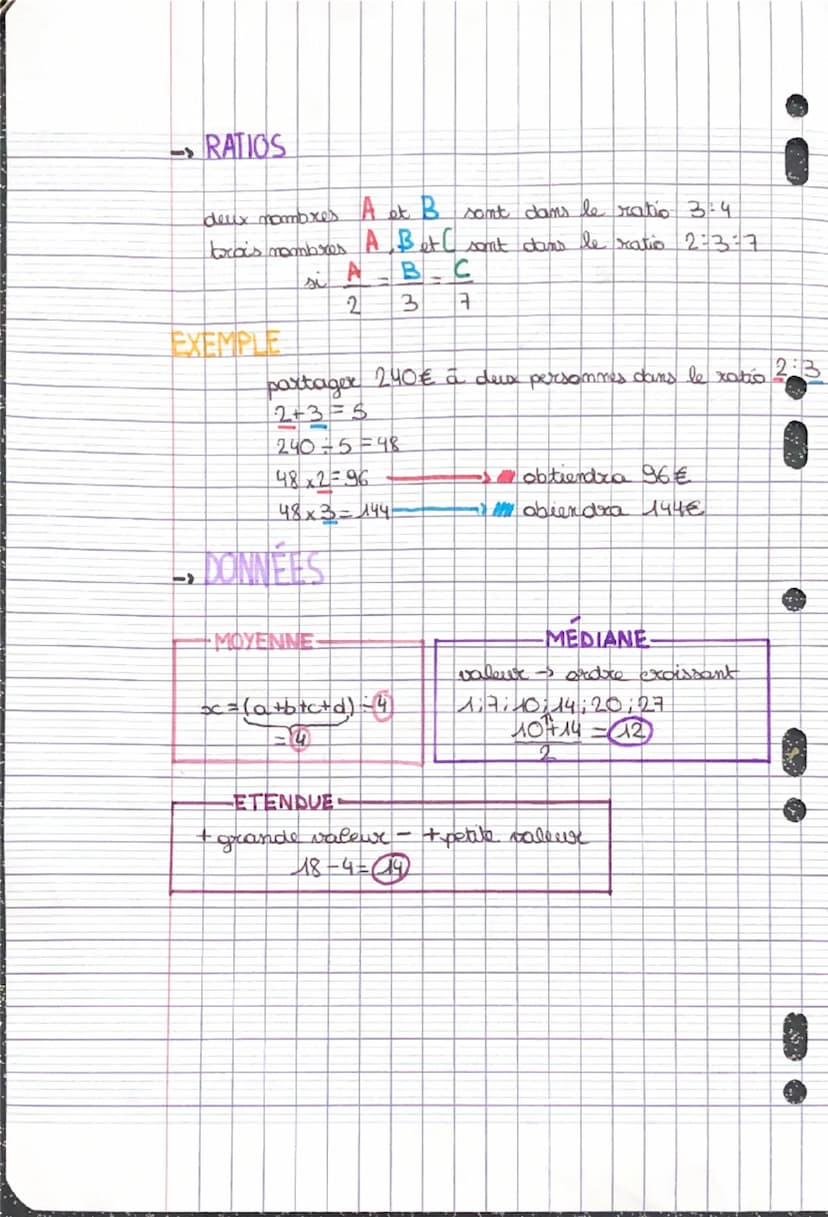 → RATIOS
deux nombres A et B sont dans le ratio 3:4
trois nombres A, B et C sont dans le ratio 2:3:7
si A/2 = B/3 = C/7
EXEMPLE
partager 240€ à deux personnes dans le ratio 2:3
2+3 = 5
240 ÷ 5 = 48
48 x 2 = 96 → obtiendra 96€
48 x 3 = 144 → obiendra 144€
→ DONNÉES
MOYENNE
x = (a+b+c+d) ÷ 4
= 4
MÉDIANE
valeur → ordre croissant
1; 7; 10; 14; 20; 27
10+14/2 = 12
ETENDUE
+ grande valeur - + petite valeur
18 - 4 = 14